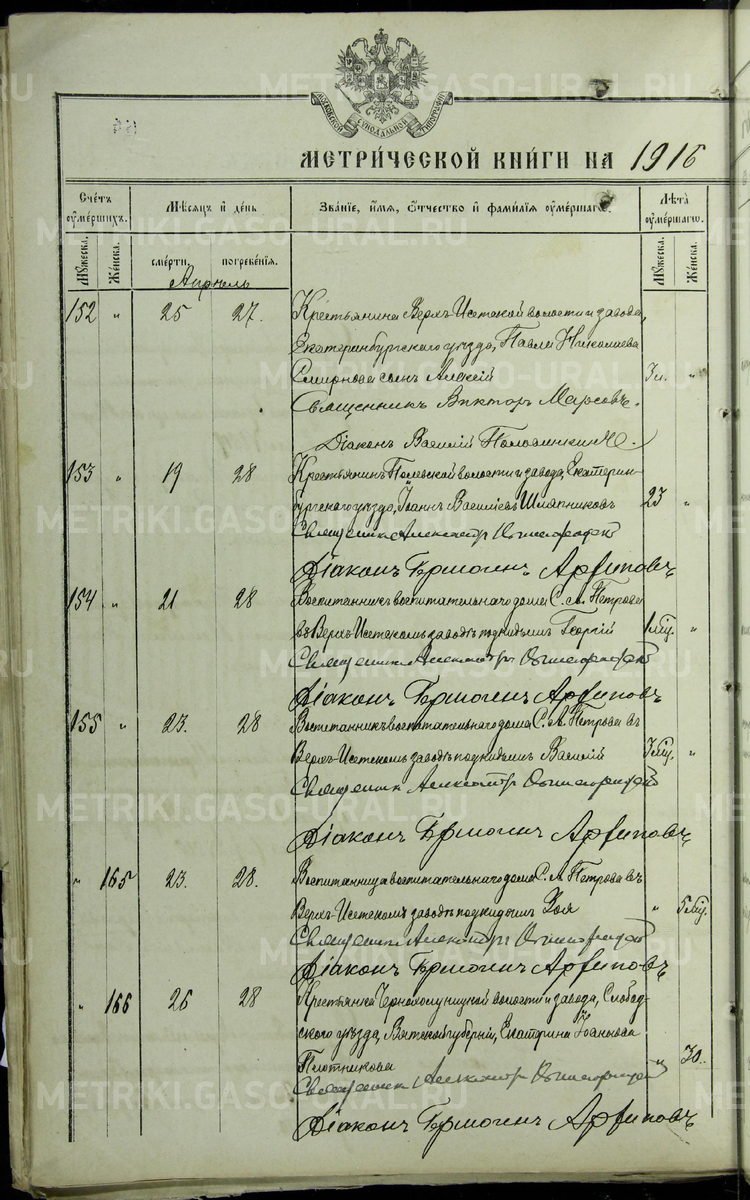 МОСКОВСКОЙ СѴНОДАЛЬНОЙ ТИПОГРАФІИ
МЕТРИ́ЧЕСКОЙ КНИ́ГИ НА 1916
Сче́тъ оу҆ме́ршихъ.
Мѣ́сяцъ и҆ де́нь
Зва́ніе, и҆́мя, ѻ҆́тчество и҆ фами́лія оу҆ме́ршагѡ.
Лѣ́та оу҆ме́ршагѡ.
Му́жеска.
Же́нска.
сме́рти,
погребе́нія.
Му́жеска.
Же́нска.
Апрѣль
152 " 25 27. Крестьянина Верхъ-Исетской волости и завода,
Екатеринбургскаго уѣзда, Павла Николаева
Смирнова сынъ Алексій "
Священникъ Викторъ
Діаконъ Василій
153 " 19 28 Крестьянинъ Полевской волости и завода, Екатерин-
бургскаго уѣзда, Іоаннъ Василіевъ Шляпниковъ 23 "
Священникъ Александръ
Діаконъ Ермогенъ Архиповъ
154 " 21 28 Воспитанникъ воспитательнаго дома С. А. Петрова
въ Верхъ-Исетскомъ заводѣ подкидышъ Георгій 1 мѣс. "
Священникъ Александръ
Діаконъ Ермогенъ Архиповъ
155 " 23. 28 Воспитанникъ воспитательнаго дома С. А. Петрова въ
Верхъ-Исетскомъ заводѣ подкидышъ Василій 3 мѣс. "
Священникъ Александръ
Діаконъ Ермогенъ Архиповъ
" 165 23. 28. Воспитанница воспитательнаго дома С. А. Петрова въ
Верхъ-Исетскомъ заводѣ подкидышъ Зоя " 5 мѣс.
Священникъ Александръ
Діаконъ Ермогенъ Архиповъ
" 166 26 28 Крестьянка Чернохолуницкой волости и завода, Слобод-
ского уѣзда, Вятской губерніи, Екатерина Іоаннова
Плотникова " 30.
Священникъ Александръ
Діаконъ Ермогенъ Архиповъ
METRIKI.GASO-URAL.RU